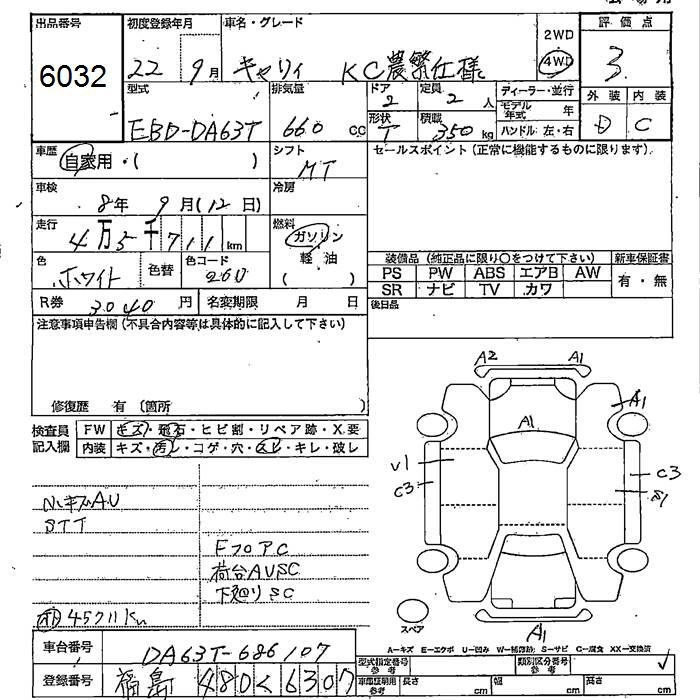 出品番号
6032
初度登録年月
22 9月
車名・グレード
キャリィ KC農繁仕様
2WD
4WD
評価点
3
型式
EBD-DA63T
排気量
660 cc
ドア
2
定員
2 人
形状
T
積載
350 kg
ディーラー・並行
モデル年式 年
ハンドル 左・右
外装 内装
D C
車歴
自家用・( )
シフト
MT
セールスポイント(正常に機能するものに限ります)
車検
8年 9月(12日)
冷房
走行
4万5千711km
燃料
ガソリン
軽油
( )
色
ホワイト
色替
色コード
26U
装備品 (純正品に限り〇をつけて下さい)
新車保証書
PS PW ABS エアB AW
SR ナビ TV カワ
有・無
R券 3040 円
名変期限 月 日
後日品
注意事項申告欄(不具合内容等は具体的に記入して下さい)
修復歴 有 〔箇所 〕
検査員記入欄
FW キズ・飛石・ヒビ割・リペア跡・X要
内装 キズ・汚レ・コゲ・穴・スレ・キレ・破レ
小キズAU
STT
Fフロア C
荷台AUSC
下廻りSC
45711Km
A2 A1
A1
A1
V1
C3
C3
S1
A1
スペア
A-キズ E-エクボ U-凹み W-補修跡 S-サビ C-腐食 XX-交換済
車台番号
DA63T-686107
登録番号
福島 480く6307
型式指定番号
参考
類別区分番号
参考
車庫証明用
参考
長さ cm
幅 cm
高さ cm